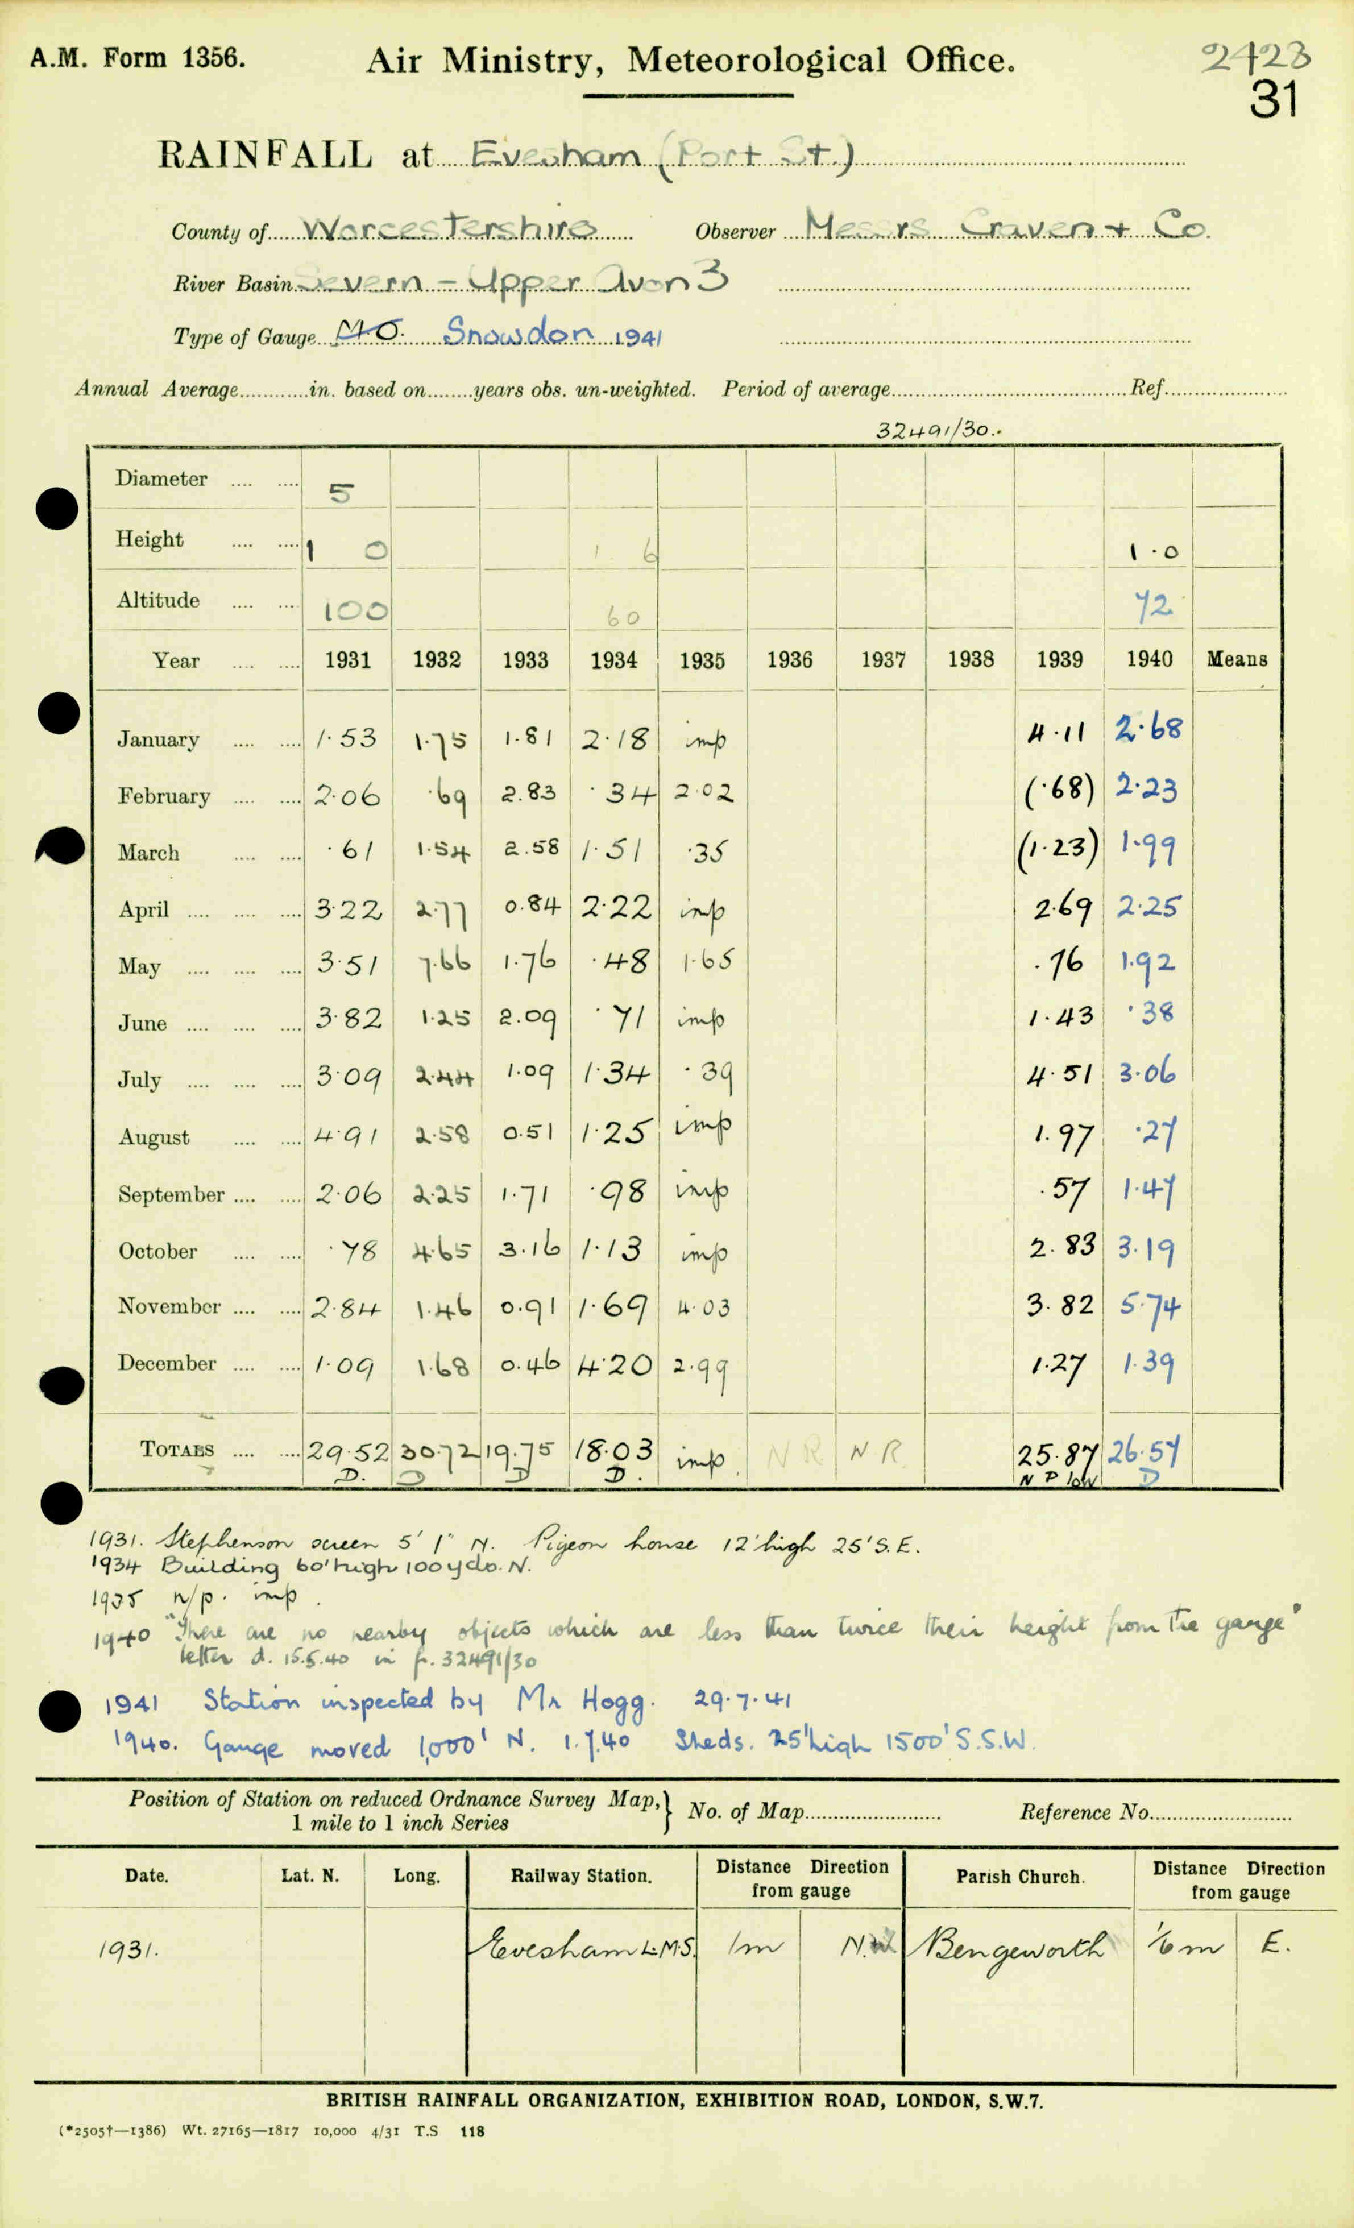 A.M. Form 1356. Air Ministry, Meteorological Office. 2423
31
RAINFALL at Evesham (Port St.)
County of Worcestershire Observer Messrs Craven + Co.
River Basin Severn - Upper Avon 3
Type of Gauge M.O. Snowdon 1941
Annual Average in. based on years obs. un-weighted. Period of average Ref.
32491/30.
Diameter 5
Height 1 0 1 6 1·0
Altitude 100 60 72
Year 1931 1932 1933 1934 1935 1936 1937 1938 1939 1940 Means
January 1·53 1·75 1·81 2·18 imp 4·11 2·68
February 2·06 ·69 2.83 ·34 2·02 (·68) 2·23
March ·61 1·54 2.58 1·51 ·35 (1·23) 1·99
April 3·22 2·77 0.84 2·22 imp 2·69 2·25
May 3·51 7·66 1·76 ·48 1·65 ·76 1·92
June 3·82 1·25 2.09 ·71 imp 1·43 ·38
July 3·09 2·44 1·09 1·34 ·39 4·51 3·06
August 4·91 2·58 0.51 1·25 imp 1.97 ·27
September 2·06 2·25 1·71 ·98 imp ·57 1·47
October ·78 4·65 3·16 1·13 imp 2.83 3·19
November 2·84 1·46 0.91 1·69 4·03 3.82 5·74
December 1·09 1·68 0.46 4·20 2·99 1·27 1·39
TOTALS 29·52 30·72 19·75 18·03 imp NR NR 25·87 26·57
D. D D D. N P low D
1931. Stephenson screen 5' 1" N. Pigeon house 12' high 25' S.E.
1934 Building 60' high 100 yds. N.
1935 n/p. imp.
1940 "There are no nearby objects which are less than twice their height from the gauge"
letter d. 15.5.40 in f. 32491/30
1941 Station inspected by Mr Hogg. 29.7.41
1940. Gauge moved 1,000' N. 1.7.40 Sheds. 25' high 1500' S.S.W.
Position of Station on reduced Ordnance Survey Map,} No. of Map Reference No.
1 mile to 1 inch Series
Date. Lat. N. Long. Railway Station. Distance Direction from gauge Parish Church. Distance Direction from gauge
1931. Evesham L.M.S. 1m N.W Bengeworth 1/6 m E.
BRITISH RAINFALL ORGANIZATION, EXHIBITION ROAD, LONDON, S.W.7.
(*2505†—1386) Wt. 27165—1817 10,000 4/31 T.S 118